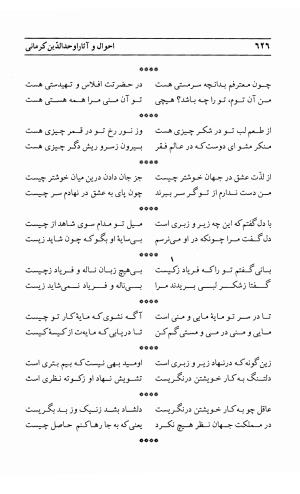 ۶۲۶ احوال و آثار اوحدالدّین کرمانی
****
چون معترفم بدانچه سرمستی هست در حضرتت افلاس و تهیدستی هست
من آن توم، تو را چه باشد؟ هیچی تو آن منی مرا همه هستی هست
****
از طعم لب تو در شکر چیزی هست وز نور رخ تو در قمر چیزی هست
منکر مشو ای دوست که در عالم فقر بیرون ز سر و ریش دگر چیزی هست
****
از لذّت عشق در جهان خوشتر چیست جز جان دادن درین میان خوشتر چیست
من دست ندارم از تو گر سر ببرند چون پای به عشق در نهادم سر چیست
****
با دل گفتم که این چه زیر و زبری است میل تو مدام سوی شاهد از چیست
دل گفت مرا چونکه در او می‌نرسم بی‌مایهٔ او بگو که چون شاید زیست
****
با نی گفتم تو را که فریاد ز کیست بی‌هیچ زبان ناله و فریاد ز چیست
گفتا ز شکر لبی بریدند مرا بی‌ناله و فریاد نمی‌شاید زیست
****
تا در سر تو مایهٔ مایی و منی است آگه نشوی که مایهٔ کار تو چیست
مایی و منی در می و مستی گم کن تا دریابی که مایه‌ت از کیسهٔ کیست
****
زین گونه که در نهاد زیر و زبری است اومید بهی نیست که بیم بتری است
دلتنگ به کار خویشتن در نگریست تشویش نهاد او ز کوته نظری است
****
عاقل چو به کار خویشتن در نگریست دلشاد بشد ز نیک وز بد بگریست
در مملکت جهان نظر هیچ نکرد یعنی که به جا رها کنم حاصل چیست
****